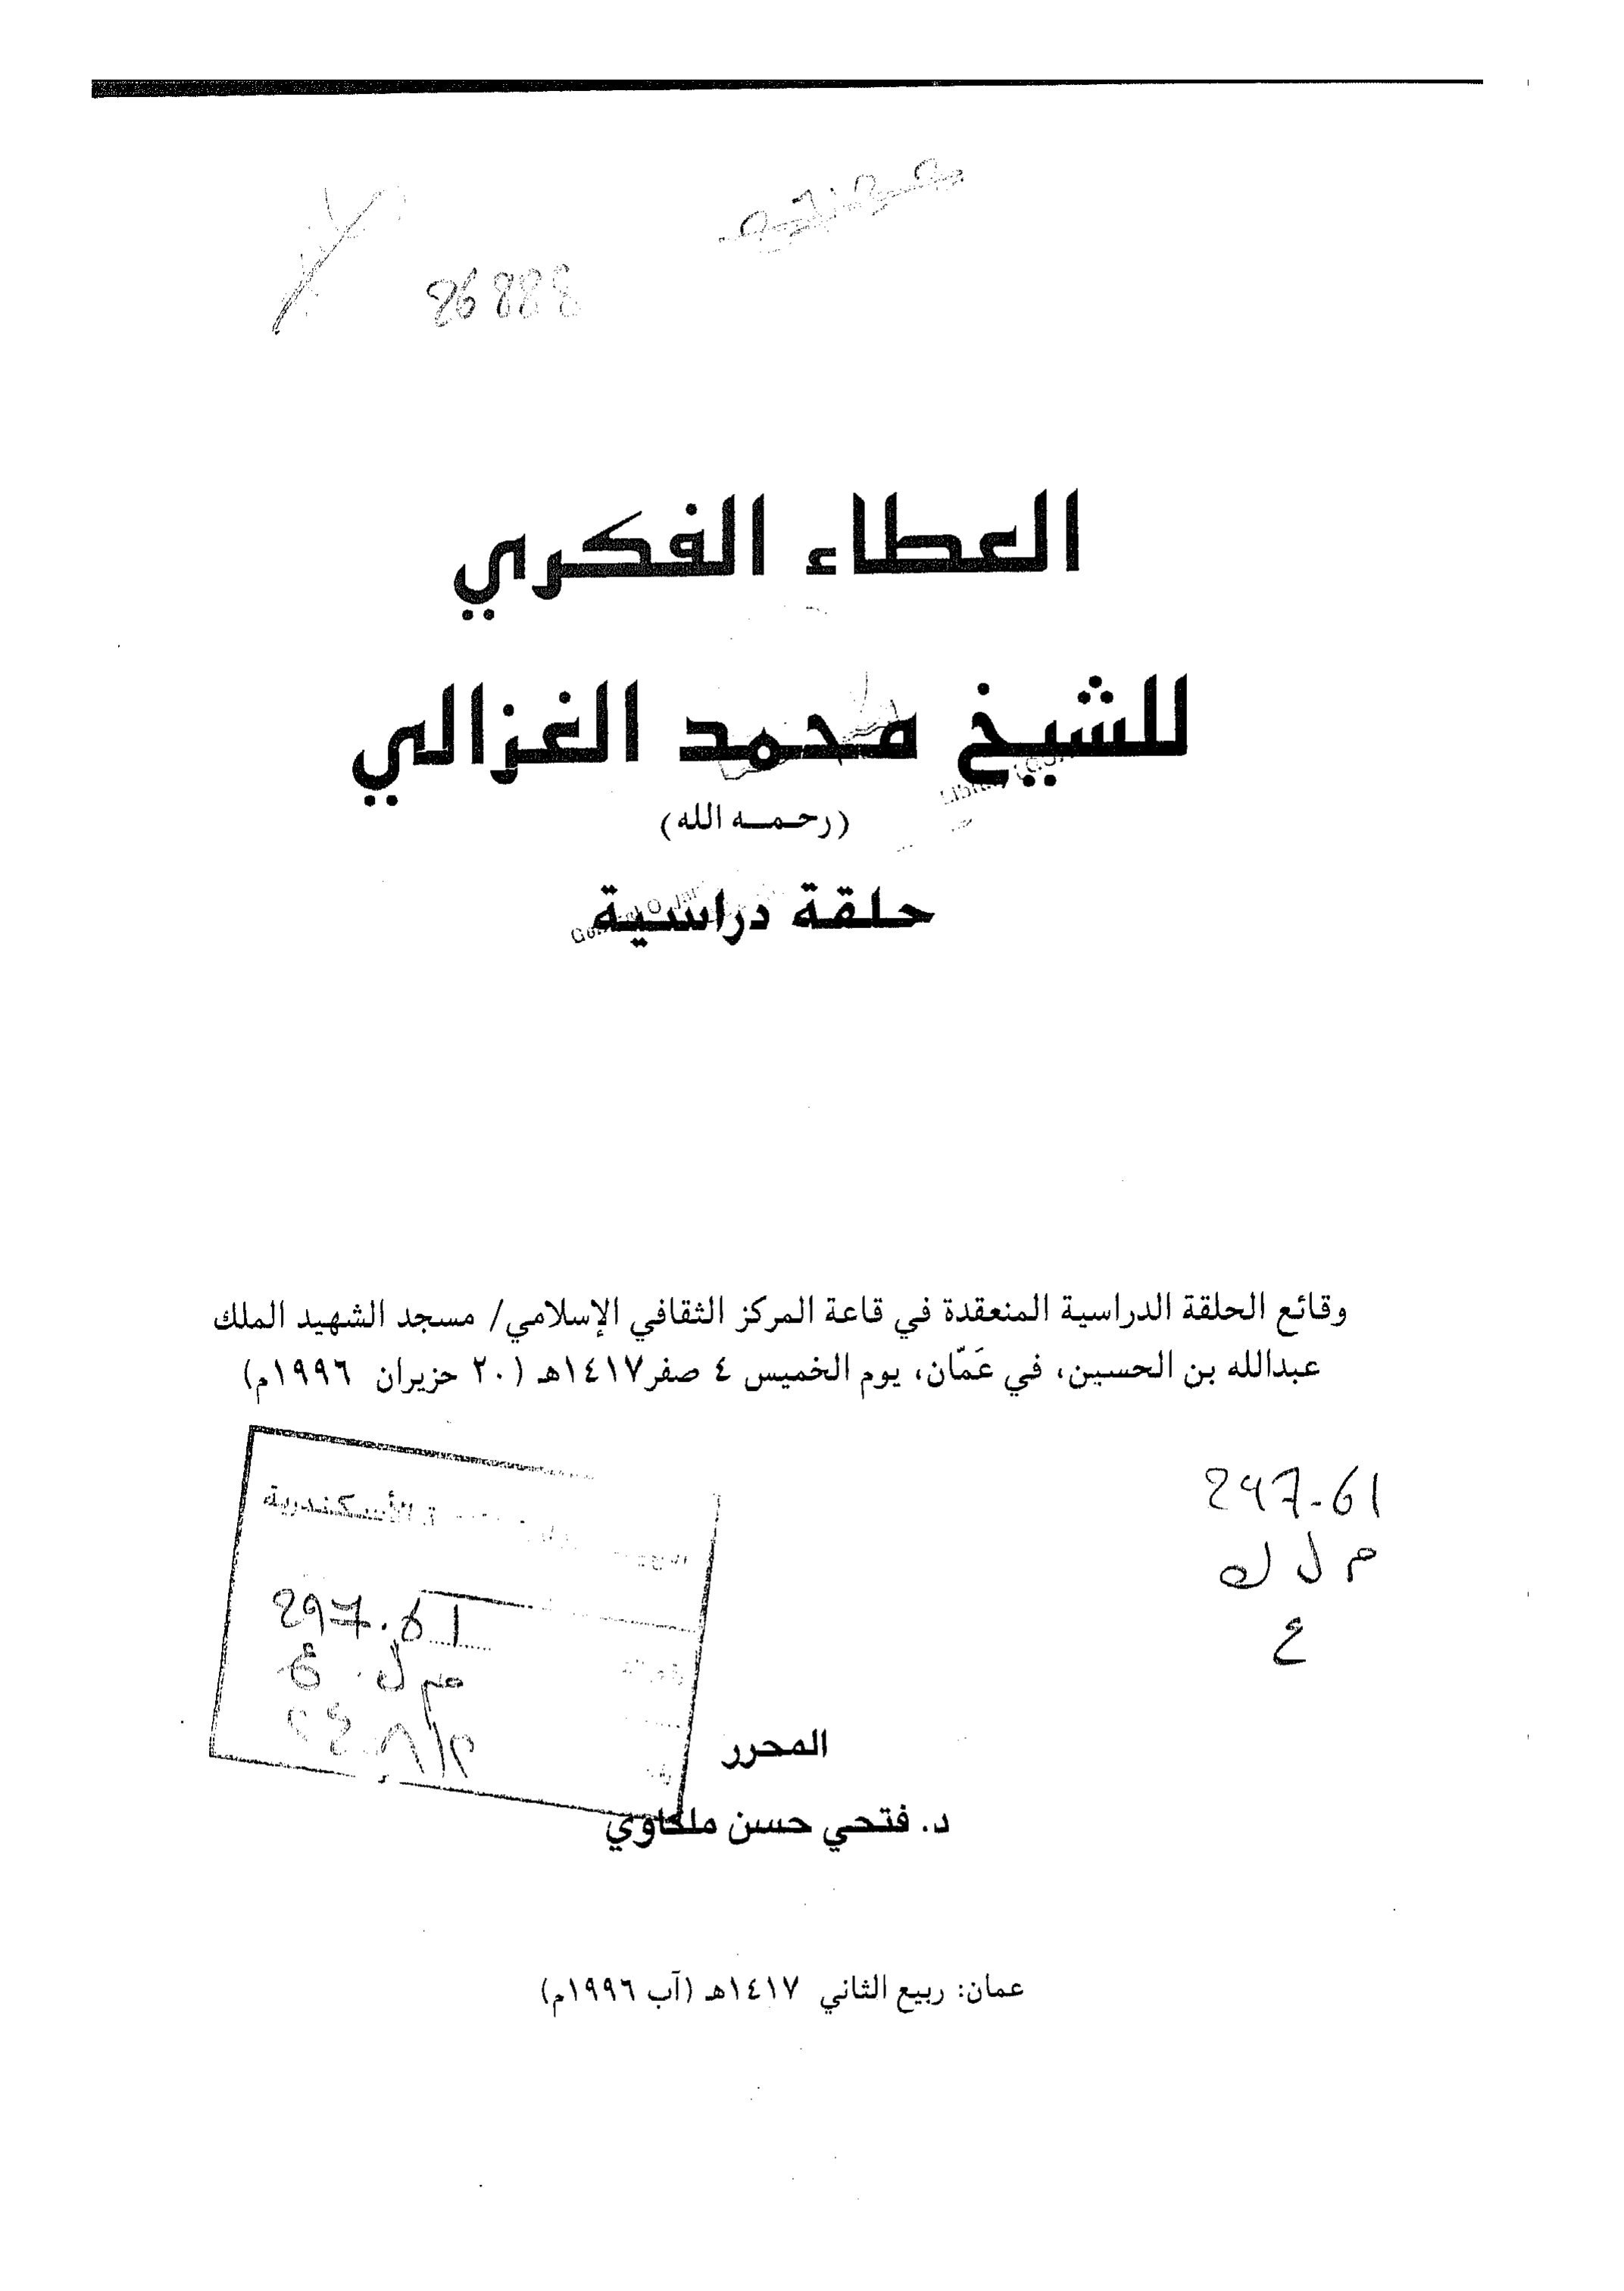 86888
العطاء الفكري
للشيخ محمد الغزالي
(رحمه الله)
حلقة دراسية
وقائع الحلقة الدراسية المنعقدة في قاعة المركز الثقافي الإسلامي/ مسجد الشهيد الملك
عبدالله بن الحسين، في عَمّان، يوم الخميس ٤ صفر١٤١٧هـ (٢٠ حزيران ١٩٩٦م)
297-61
م ل ك
ع
الأسكندرية
297.61
المحرر
د. فتحي حسن ملكاوي
عمان: ربيع الثاني ١٤١٧هـ (آب ١٩٩٦م)